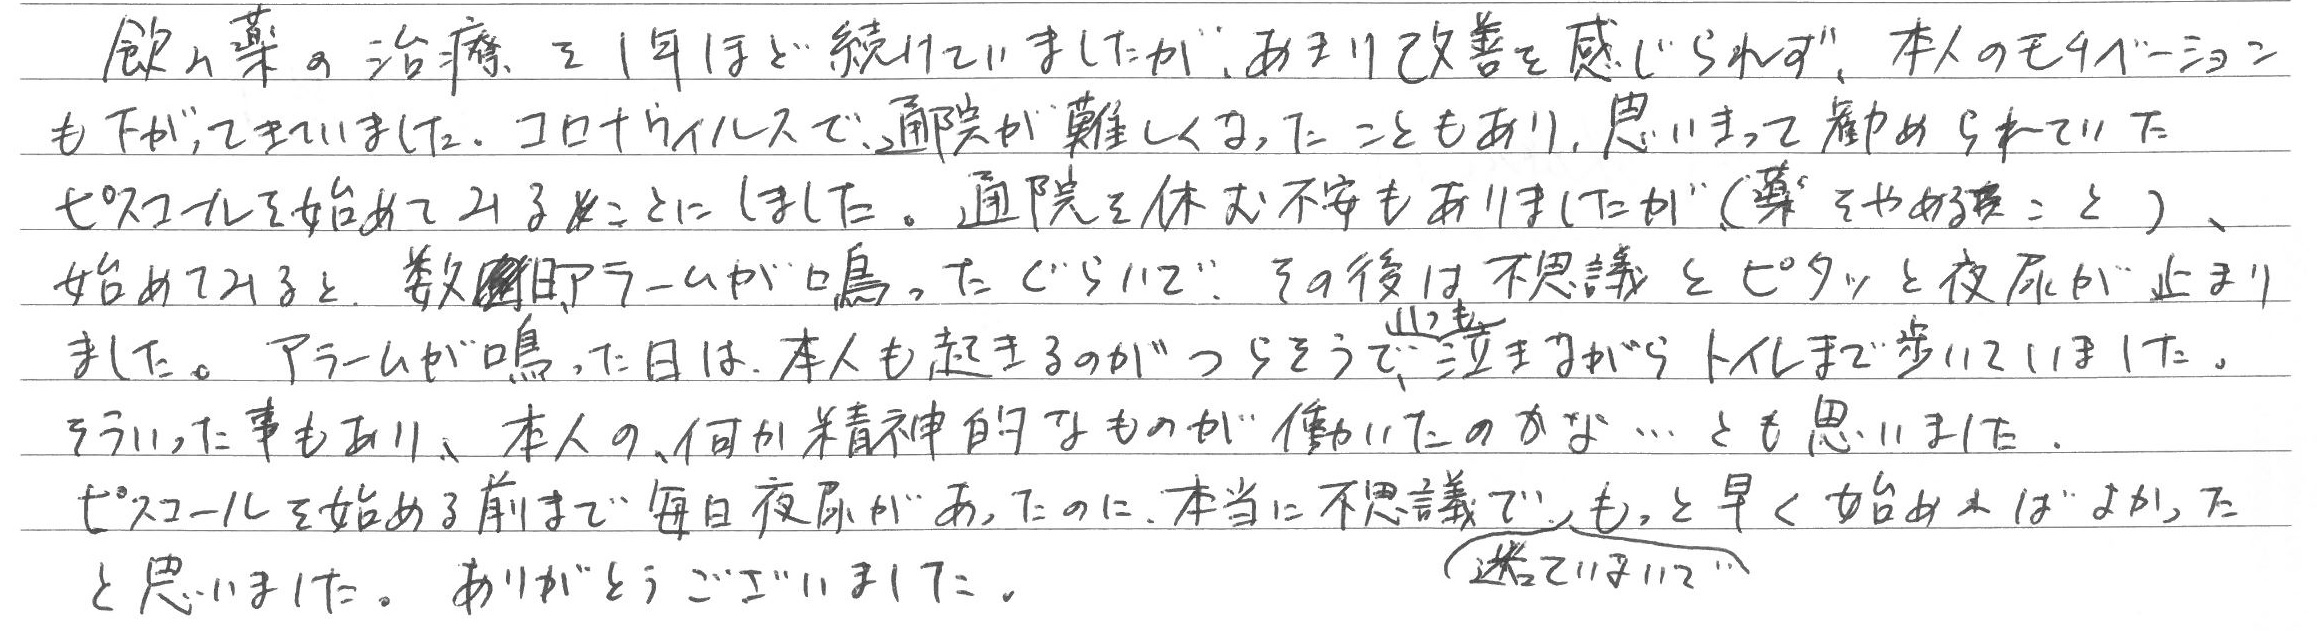 飲み薬の治療を1年ほど続けていましたが、あまり改善を感じられず、本人のモチベーション
も下がってきていました。コロナウィルスで、通院が難しくなったこともあり、思いきって勧められていた
ピスコールを始めてみることにしました。通院を休む不安もありましたが(薬をやめること)、
始めてみると、数日アラームが鳴ったぐらいで、その後は不思議とピタッと夜尿が止まり
ました。アラームが鳴った日は、本人も起きるのがつらそうで、いつも泣きながらトイレまで歩いていました。
そういった事もあり、本人の、何か精神的なものが働いたのかな…とも思いました。
ピスコールを始める前まで毎日夜尿があったのに、本当に不思議で、迷っていないで もっと早く始めればよかった
と思いました。ありがとうございました。